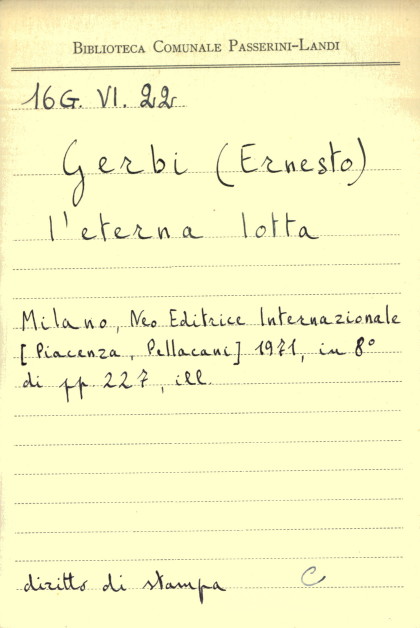 BIBLIOTECA COMUNALE PASSERINI-LANDI
16G. VI. 22
Gerbi (Ernesto)
l'eterna lotta
Milano, Neo Editrice Internazionale
[Piacenza, Pellacani] 1971, in 8°
di pp 227, ill.
diritto di stampa C